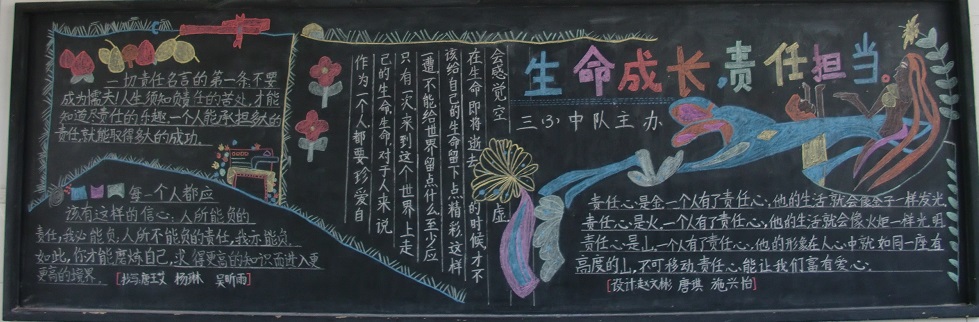 生命成长,责任担当。
三(3)中队主办
一切责任名言的第一条:不要
成为懦夫!人生须知负责任的苦处,才能
知道尽责任的乐趣。一个人能承担多大的
责任,就能取得多大的成功。
每一个人都应
该有这样的信心:人所能负的
责任,我必能负,人所不能负的责任,我亦能负,
如此,你才能磨炼自己,求得更高的知识而进入更
更高的境界。
杨琳 吴昕雨]
作为一个人都要珍爱自
己的生命,生命对于人来说
只有一次,来到这个世界上走
一遭,不能给世界留点什么,至少应
该给自己的生命留下点精彩,这样
在生命即将逝去的时候,才不
会感觉空虚
责任心是金,一个人有了责任心,他的生活就会像金子一样发光
责任心是火,一个人有了责任心,他的生活就会像火炬一样光明
责任心是山,一个人有了责任心,他的形象在人心中就如同一座有
高度的山,不可移动。责任心能让我们富有爱心。
[设计:赵文彬 唐琪 施兴怡]